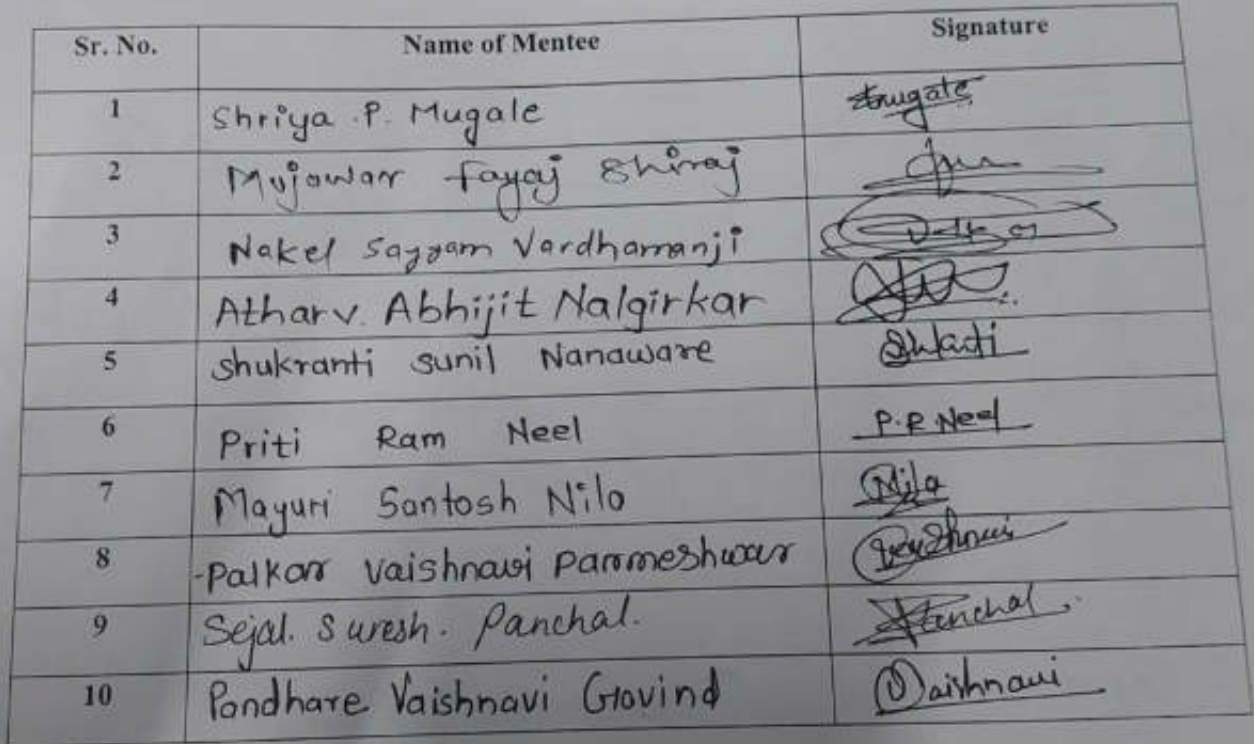 Sr. No. Name of Mentee Signature
1 Shriya .P. Mugale
2 Mujawar Fayaj Shiraj
3 Nakel Sayyam Vardhamanji
4 Atharv. Abhijit Nalgirkar
5 Shukranti Sunil Nanaware
6 Priti Ram Neel P.R.Neel
7 Mayuri Santosh Nila Nila
8 -Palkar Vaishnavi Parmeshwar Vaishnavi
9 Sejal. Suresh. Panchal. Panchal.
10 Pandhare Vaishnavi Govind Vaishnavi